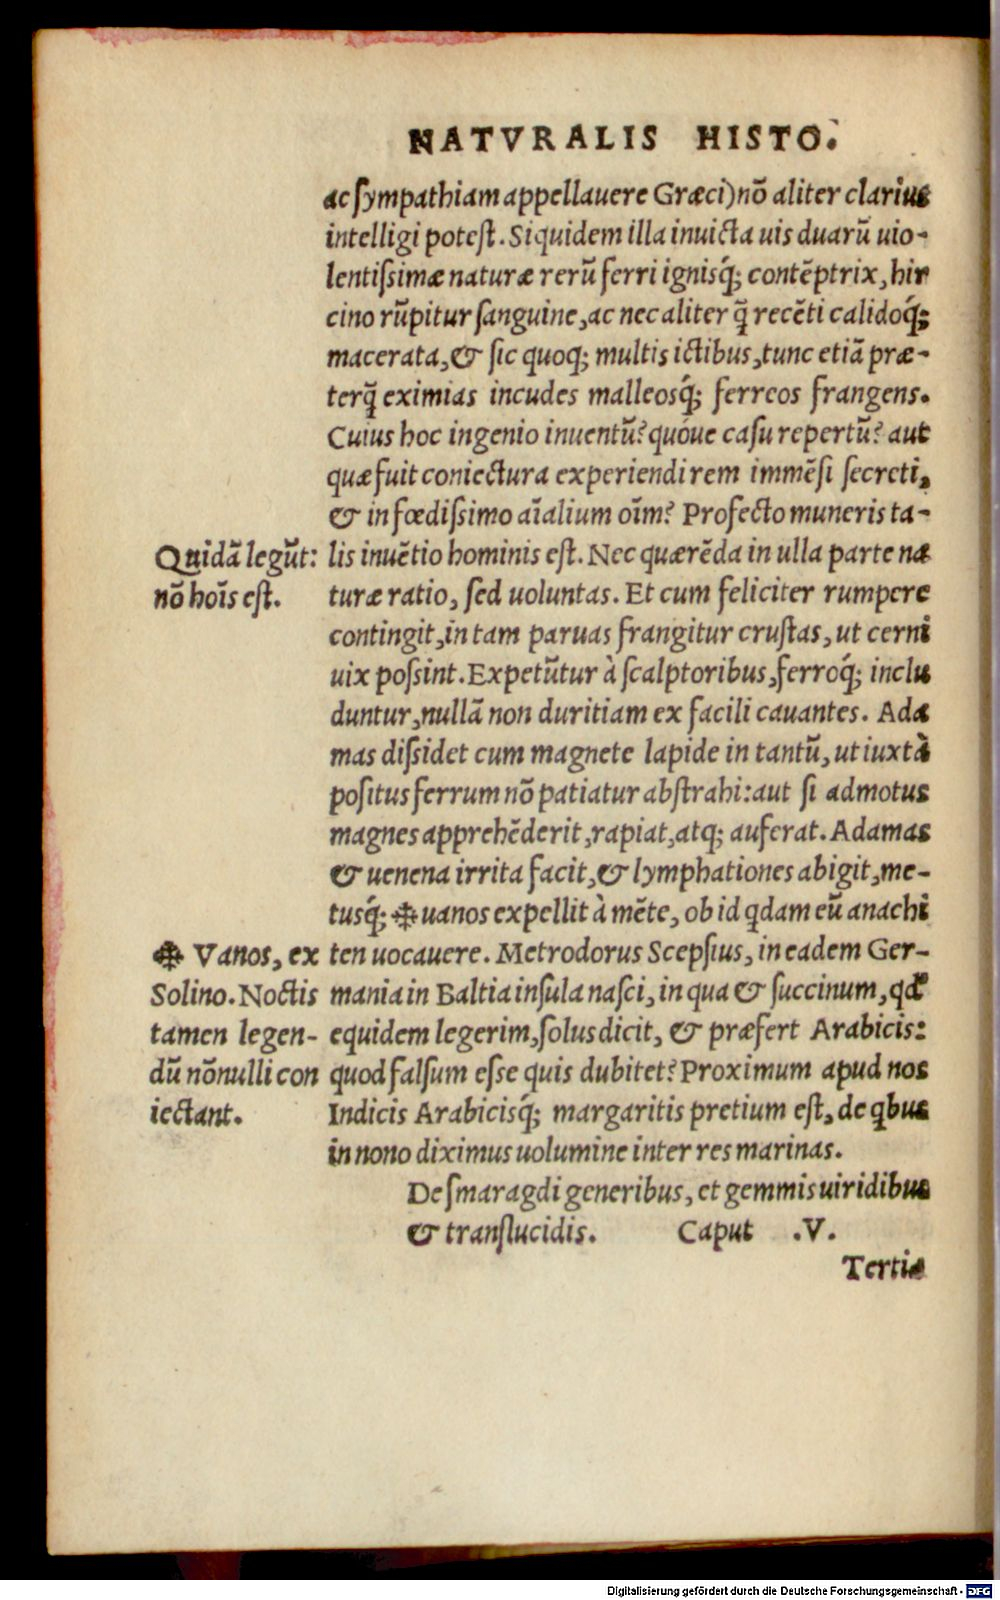 NATVRALIS HISTO.
ac sympathiam appellauere Græci) nõ aliter clarius
intelligi potest. Siquidem illa inuicta uis duarũ uio-
lentissimæ naturæ rerũ ferri ignisq́; contẽptrix, hir
cino rũpitur sanguine, ac nec aliter q̃ recẽti calidoq́;
macerata, & sic quoq; multis ictibus, tunc etiã præ-
terq̃ eximias incudes malleosq́; ferreos frangens.
Cuius hoc ingenio inuentũ? quóue casu repertũ? aut
quæ fuit coniectura experiendi rem immẽsi secreti,
& in fœdissimo aĩalium oĩm? Profecto muneris ta-
lis inuẽtio hominis est. Nec quærẽda in ulla parte na
turæ ratio, sed uoluntas. Et cum feliciter rumpere
contingit, in tam paruas frangitur crustas, ut cerni
uix possint. Expetũtur à scalptoribus, ferroq́; inclu
duntur, nullã non duritiam ex facili cauantes. Ada
mas dissidet cum magnete lapide in tantũ, ut iuxtà
positus ferrum nõ patiatur abstrahi: aut si admotus
magnes apprehẽderit, rapiat, atq; auferat. Adamas
& uenena irrita facit, & lymphationes abigit, me-
tusq́; ✠ uanos expellit à mẽte, ob id qdam eũ anachi
ten uocauere. Metrodorus Scepsius, in eadem Ger-
mania in Baltia insula nasci, in qua & succinum, qđ
equidem legerim, solus dicit, & præfert Arabicis:
quod falsum esse quis dubitet? Proximum apud nos
Indicis Arabicisq́; margaritis pretium est, de qbus
in nono diximus uolumine inter res marinas.
De smaragdi generibus, et gemmis uiridibus
& translucidis. Caput .V.
Tertia
Quidã legũt:
nõ hoĩs est.
✠ Vanos, ex
Solino. Noctis
tamen legen-
dũ nõnulli con
iectant.
Digitalisierung gefördert durch die Deutsche Forschungsgemeinschaft - DFG